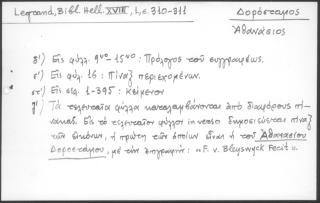 Legrand, Bibl. Hell. XVIII, I, σ. 310-311
Δορόσταμος
Ἀθανάσιος
δ') Εἰς φύλλ. 9νο - 15νο : Πρόλογος τοῦ συγγραφέως.
ε') Εἰς φύλ. 16 : Πίναξ περιεχομένων.
στ') Εἰς σελ. 1-395 : Κείμενον
ζ') Τὰ τελευταῖα φύλλα καταλαμβάνονται ἀπὸ διαφόρους πί-
νακας. Εἰς τὸ τελευταῖον φύλλον in verso δημοσιεύεται πίναξ
τῶν εἰκόνων, ἡ πρώτη τῶν ὁποίων εἶναι ἡ τοῦ Ἀθανασίου
Δοροστάμου, μὲ τὴν ἐπιγραφήν : «F. v. Bleyswyck Fecit».